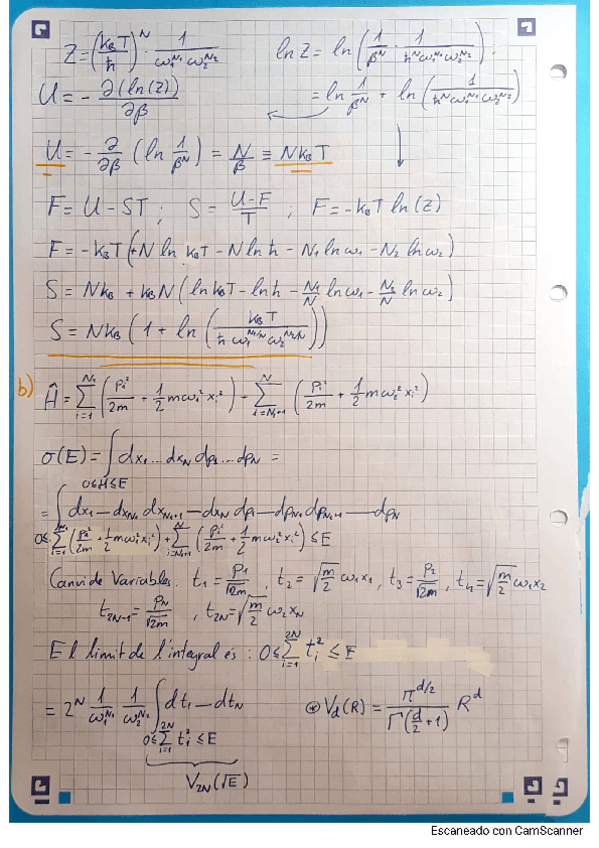 Z = (k_B T / ħ)^N · 1 / (ω₁^N₁ ω₂^N₂)    ln Z = ln (1/β^N · 1/(ħ^N ω₁^N₁ ω₂^N₂)).
U = - ∂(ln(z))/∂β    = ln 1/β^N + ln (1/(ħ^N ω₁^N₁ ω₂^N₂))
U = - ∂/∂β (ln 1/β^N) = N/β ≡ N k_B T
F = U - ST ; S = (U-F)/T ; F = -k_B T ln(z)
F = -k_B T (+N ln k_B T - N ln ħ - N₁ ln ω₁ - N₂ ln ω₂)
S = N k_B + k_B N (ln k_B T - ln ħ - N₁/N ln ω₁ - N₂/N ln ω₂)
S = N k_B (1 + ln (k_B T / (ħ ω₁^(N₁/N) ω₂^(N₂/N))))
b) Ĥ = ∑_{i=1}^{N₁} (p_i²/2m + 1/2 m ω₁² x_i²) + ∑_{i=N₁+1}^{N} (p_i²/2m + 1/2 m ω₂² x_i²)
σ(E) = ∫_{0≤H≤E} dx₁ ... dx_N dp₁ ... dp_N =
= ∫ dx₁ — dx_N₁ dx_{N₁+1} — dx_N dp₁ — dp_N₁ dp_{N₁+1} — dp_N
0≤ ∑_{i=1}^{N₁} (p_i²/2m + 1/2 m ω₁² x_i²) + ∑_{i=N₁+1}^{N} (p_i²/2m + 1/2 m ω₂² x_i²) ≤ E
Canvi de Variables. t₁ = p₁/√2m , t₂ = √(m/2) ω₁ x₁ , t₃ = p₂/√2m , t₄ = √(m/2) ω₁ x₂
t_{2N-1} = p_N/√2m , t_{2N} = √(m/2) ω₂ x_N
El limit de l'integral és : 0 ≤ ∑_{i=1}^{2N} t_i² ≤ E
= 2^N 1/ω₁^N₁ 1/ω₂^N₂ ∫ dt₁ — dt_N    ⊛ V_d(R) = π^(d/2) / Γ(d/2 + 1) R^d
0 ≤ ∑_{i=1}^{2N} t_i² ≤ E
V_{2N}(√E)
Escaneado con CamScanner